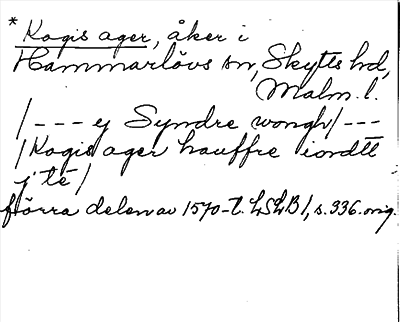 * Kogis ager, åker i
Hammarlövs sn, Skytts hd,
Malm. l.
/--- ej Syndre wongh/---
/Kogis ager hauffre iordtt
j té/
förra delen av 1570-t. LSLB 1, s. 336. orig.